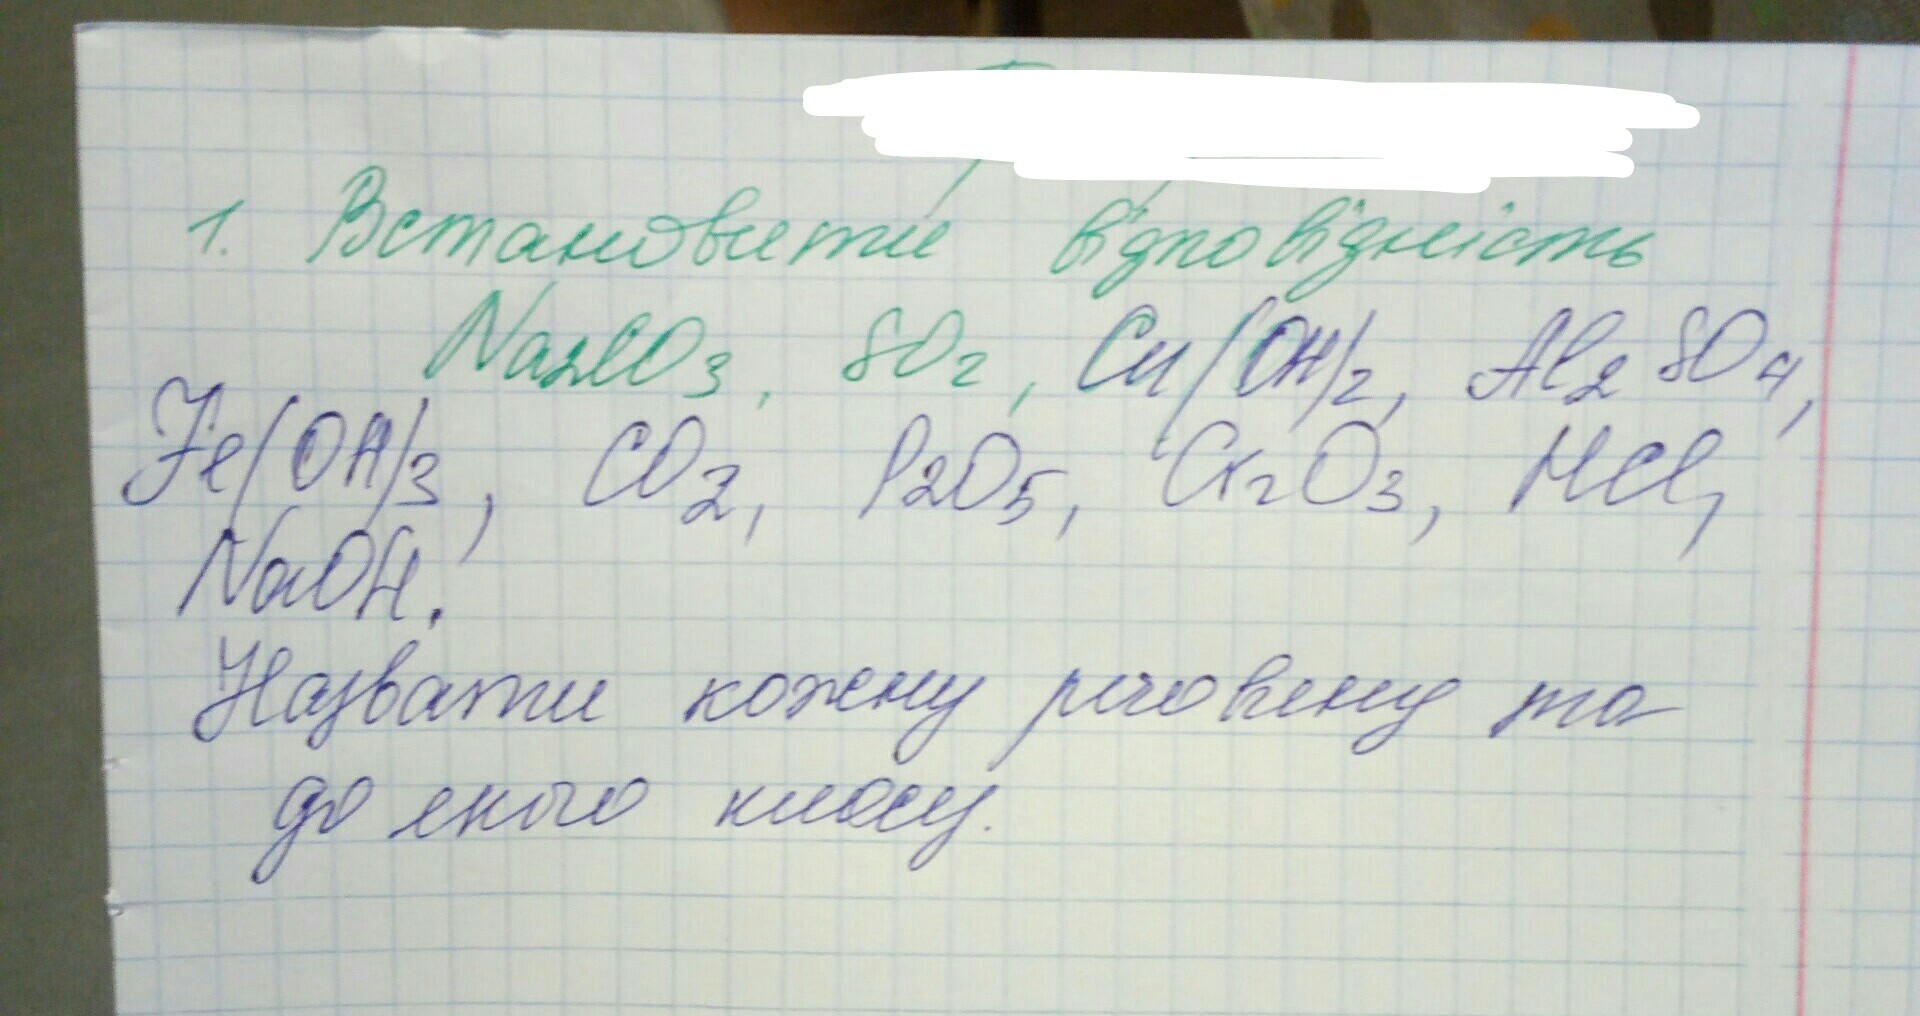 1. Встановити відповідність
Na2CO3, SO2, Cu(OH)2, Al2SO4,
Fe(OH)3, CO2, P2O5, Cr2O3, HCl,
NaOH.
Назвати кожну речовину та
до якого класу.